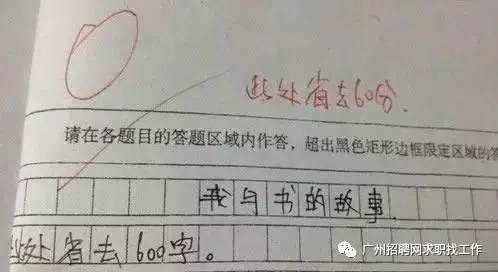 此处省去60分.
请在各题目的答题区域内作答，超出黑色矩形边框限定区域的答
我与书的故事
此处省去600字。
广州招聘网求职找工作